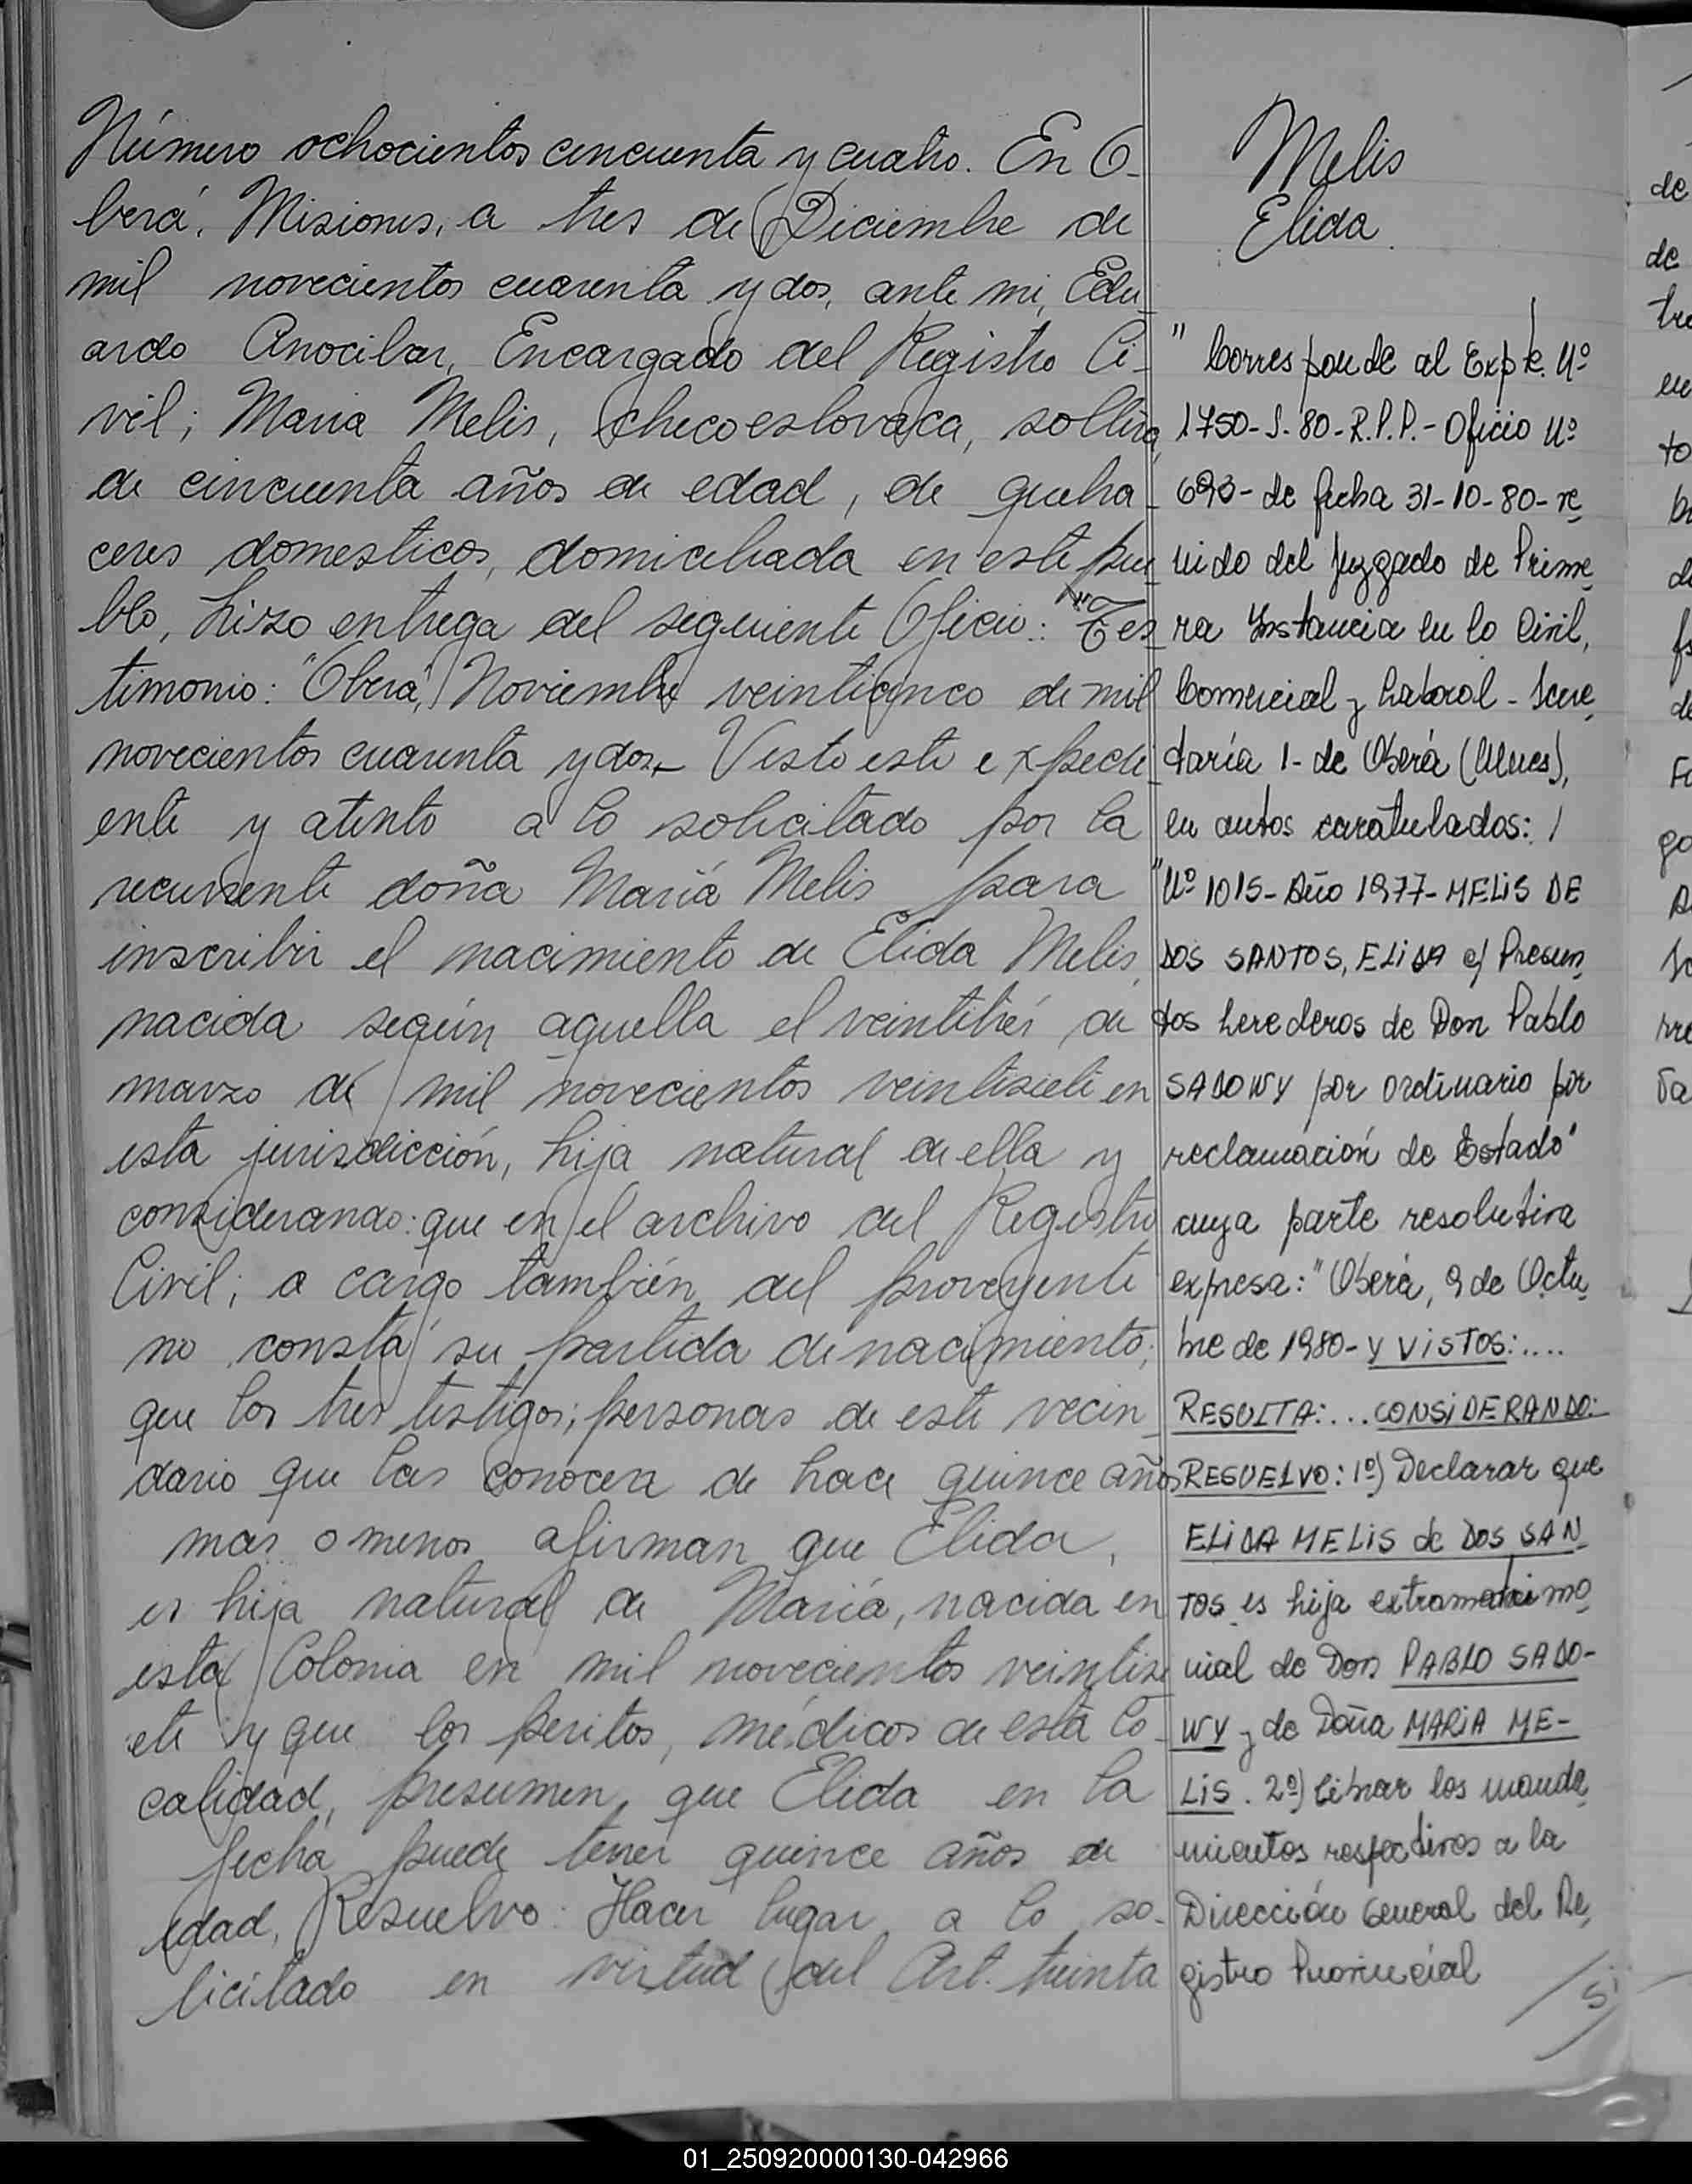 Número ochocientos cincuenta y cuatro. En O-
berá, Misiones, a tres de Diciembre de
mil novecientos cuarenta y dos, ante mi, Edu-
ardo Anocibar, Encargado del Registro Ci-
vil; Maria Melis, checoeslovaca, soltera,
de cincuenta años de edad, de queha-
ceres domesticos, domiciliada en este pue-
blo, hizo entrega del siguiente Oficio: "Tes-
timonio: "Oberá, Noviembre veinticinco de mil
novecientos cuarenta y dos.- Visto este expedi-
ente y atento a lo solicitado por la
recurrente doña María Melis para
inscribir el nacimiento de Elida Melis,
nacida según aquella el veintitrés de
marzo de mil novecientos veintisiete en
esta jurisdicción, hija natural de ella y
considerando: que en el archivo del Registro
Civil; a cargo también del proveyente
no consta su partida de nacimiento;
que los tres testigos; personas de este vecin-
dario que las conocen de hace quince años
mas o menos afirman que Elida,
es hija natural de María, nacida en
esta Colonia en mil novecientos veintisi-
ete y que los peritos, médicos de esta lo-
calidad, presumen que Elida en la
fecha puede tener quince años de
edad, Resuelvo: Hacer lugar a lo so-
licitado en virtud del Art. treinta
Melis
Elida.
" Corresponde al Expte. Nº
1750-S-80-R.P.P.-Oficio Nº
693-de fecha 31-10-80-re
nido del Juzgado de Prime
ra Instancia en lo Civil,
Comercial y Laboral-Secre
taría 1-de Oberá (Mnes),
en autos caratulados: /
"Nº 1015-Año 1977-MELIS DE
DOS SANTOS, ELIDA c/ Presun
tos herederos de Don Pablo
SADOWY por ordinario por
reclamación de Estado"
cuya parte resolutiva
expresa: "Oberá, 9 de Octu
bre de 1980-Y VISTOS:....
RESULTA:...CONSIDERANDO:
RESUELVO: 1º) Declarar que
ELIDA MELIS de DOS SAN
TOS es hija extramatrimo
nial de Don PABLO SADO-
WY y de Doña MARIA ME-
LIS. 2º) Librar los manda
mientos respectivos a la
Dirección General del Re
gistro Provincial
de
de
tre
en
to